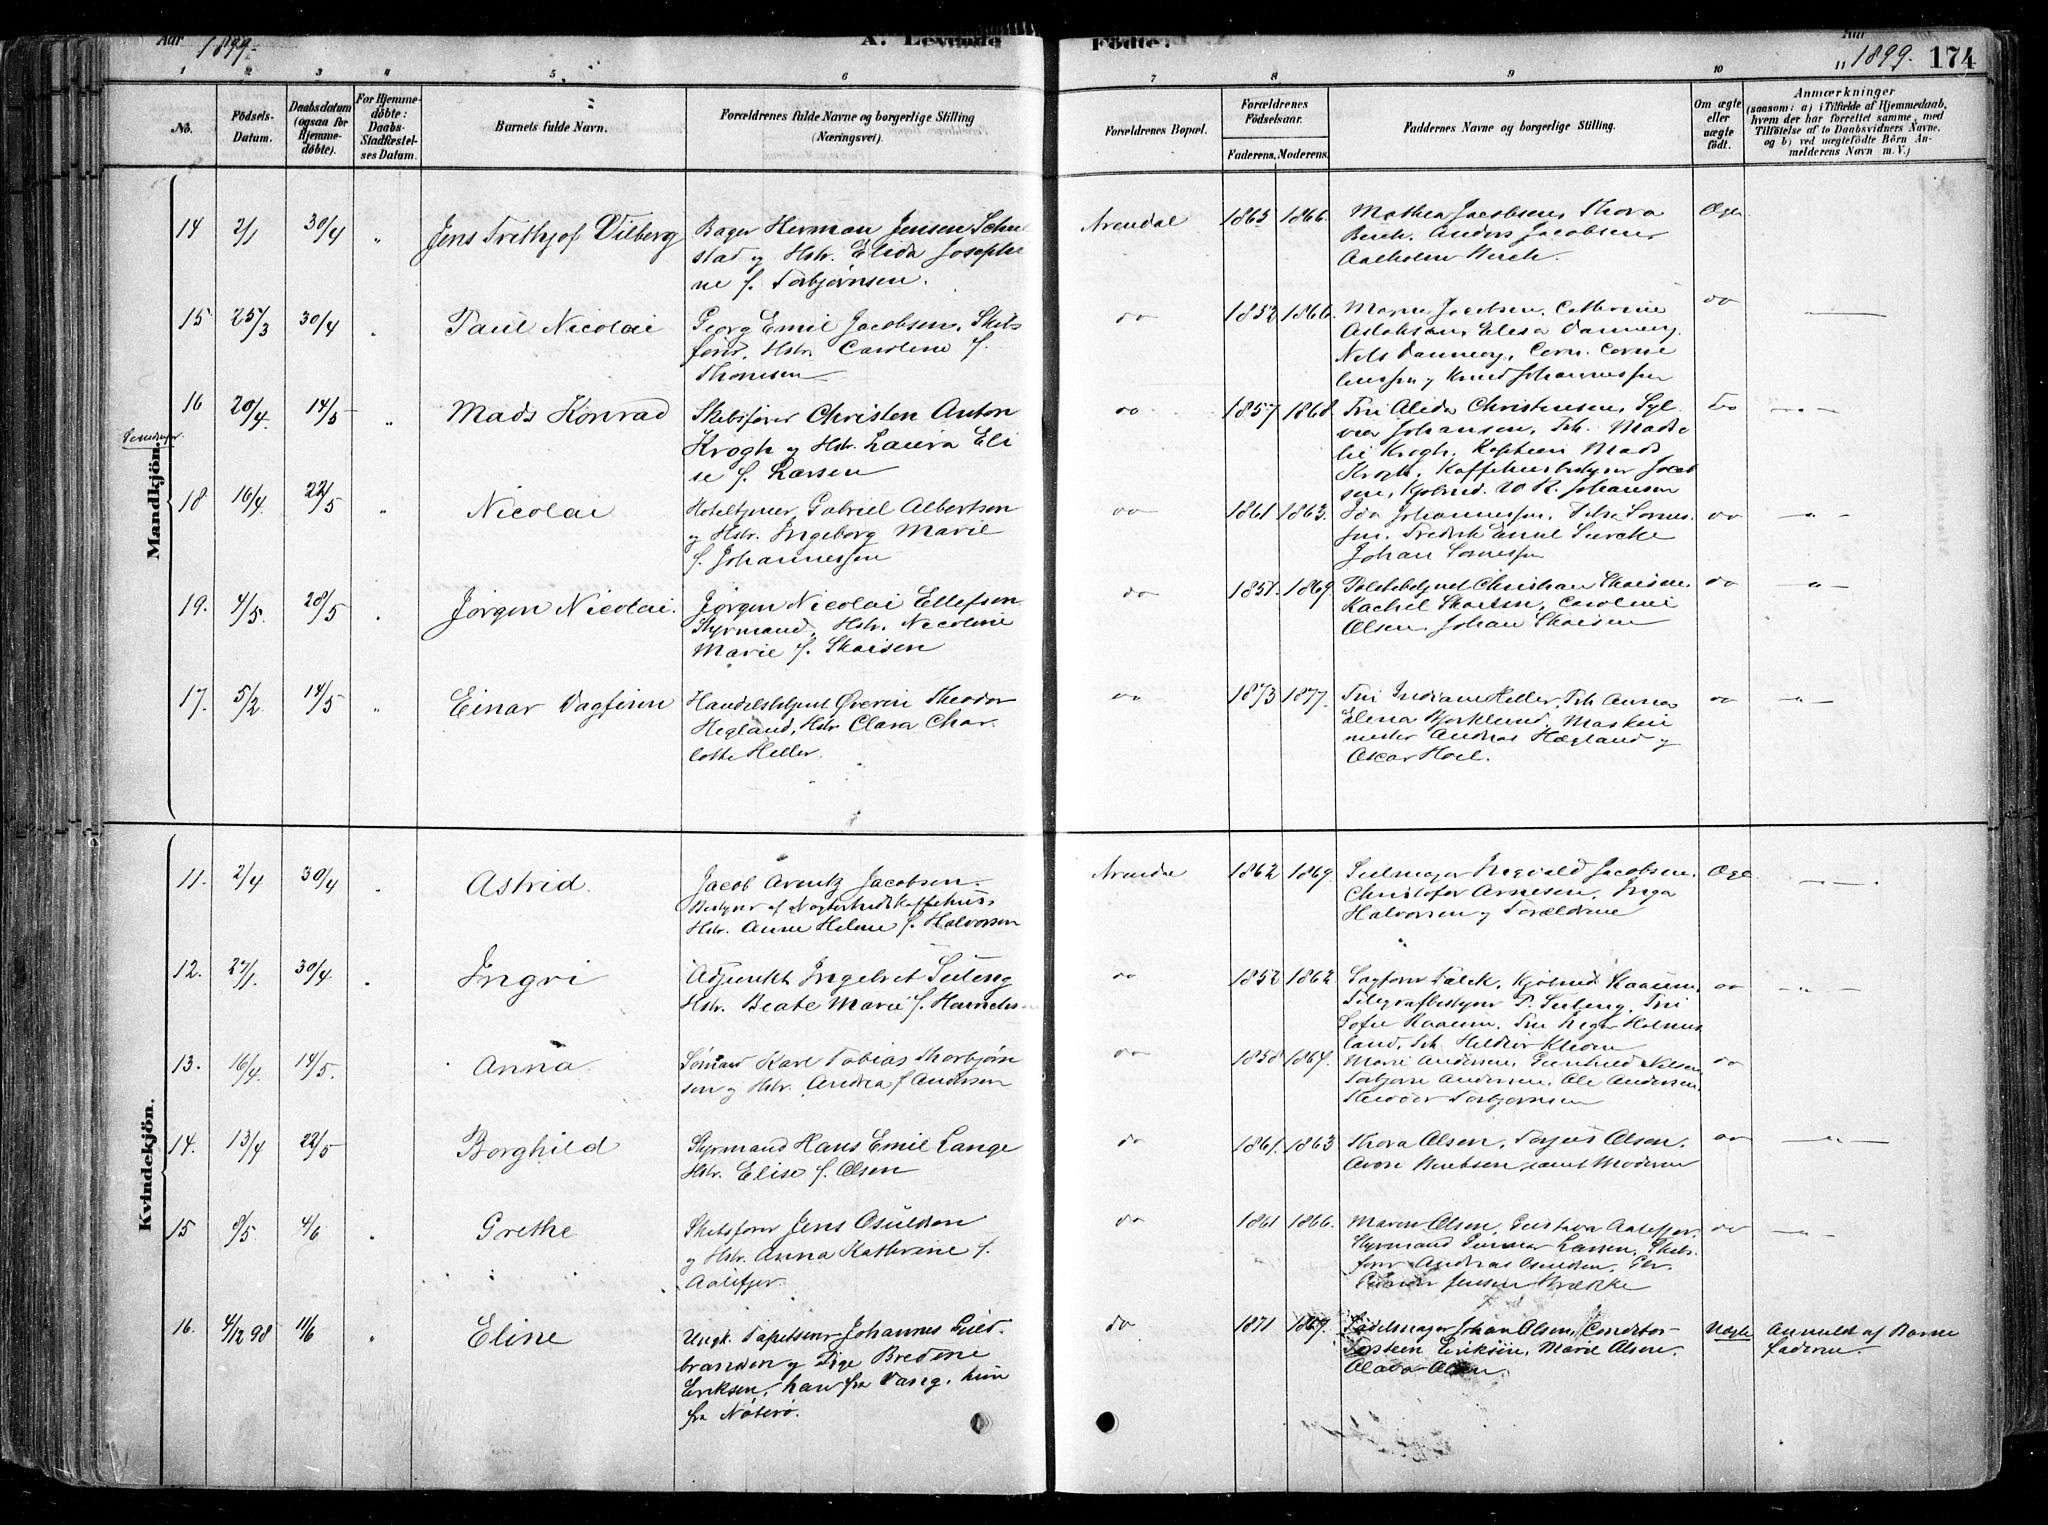 Aar 1899. A. Levende Födte. Aar 1899. 174
1 2 3 4 5 6 7 8 9 10 11
No. Födsels-Datum. Daabsdatum (ogsaa for Hjemme-döbte). For Hjemme-döbte: Daabs-Stadfæstel-ses Datum. Barnets fulde Navn. Forældrenes fulde Navne og borgerlige Stilling (Næringsvei). Forældrenes Bopæl. Forældrenes Födselsaar. Faderens. Moderens. Faddernes Navne og borgerlige Stilling. Om ægte eller uægte født. Anmærkninger (saasom: a) i Tilfælde af Hjemmedaab, hvem der har forrettet samme, med Tilföielse af to Daabsvidners Navne. og b) ved uægtefödte Börn An-melderens Navn m. V.)
Mandkjön.
14 2/1 30/4 " Jens Frithjof Vilberg Bager Herman Jensen
stad og Hstr. Elida Josephi
ne f. Torbjørnsen. Arendal 1863 1866. Mathea Jacobsen, Thora
Birch. Anders Jacobsen
Aalholm Birch. Ægte
15 25/3 30/4 " Paul Nicolai Georg Emil Jacobsen, Skibs
fører, Hstr. Caroline f.
Thomsen do 1852 1866. Jacobsen, Cathrine
Elisa Dannevig
Nels Dannevig, Corn. Corne
liussen og Knud Johannessen do
16 20/4 14/5 " Mads Konrad Skibsfører Christen Anton
Krogh og Hstr. Laura Eli
se f. Larsen do 1857 1868. Fru Alida Christensen, Syl
via Johansen, Frk. Mada
lie Krogh, Kaptein Mads
Krogh, Kaffehusbestyrer Jacob
sen, Kjøbmd. W. R. Johansen do - " -
18 16/4 22/5 " Nicolai Hoteltjener, Gabriel Albertsen
og Hstr. Ingeborg Marie
f. Johannessen do 1861 1863. Ida Johannessen,
Fredrik Emil
Johan do - " -
19. 4/5. 28/5 " Jørgen Nicolai. Jørgen Nicolai Ellefsen
Styrmand, Hstr. Nicoline
Marie f. Skoisen do 1857. 1869. Christian Skoisen.
Rachel Skoisen, Caroline
Olsen, Johan Skoisen do - " -
17. 5/2 14/5 " Einar Dagfinn Handelsbetjent Øvern Theodor
Hegland, Hstr Clara Char
lotte Heller. do 1873 1877. Fru Indiane Heller, Frk Anna
Elena Bjorklund, Maskin
mester Andreas Hægland og
Oscar Hoel. do - " -
Kvindekjön.
11. 2/4 30/4 " Astrid. Jacob Arentz Jacobsen.
Bestyrer af Nøgterheds Kaffehus
Hstr. Anne Helene f. Halvorsen Arendal 1862 1869. Seilmager Ingvald Jacobsen,
Christofer Arnesen, Inga
Halvorsen og Forældrene Ægte - " -
12. 27/1. 30/4 " Ingri Adjunkt Ingebret Seleng
Hstr. Beate Marie f. do 1852 1862. Sagfører Falck, Kjøbmd
Telegrafbestyrer P. Seleng, Fru
Sofie Fru Inger
land, Frk. do - " -
13. 16/4 14/5. Anna Sømand Karl Tobias Thorbjørn
sen og Hstr. Andrea f Andersen do 1858 1864. Marie Andersen, Gunhild Nilsen
Torbjørn Andersen, Ole Andersen,
Theodor Torbjørnsen do
14. 13/4 22/5 Borghild Styrmand Hans Emil Lange
Hstr. Elise f. Olsen do 1861. 1863 Thora Olsen, Torjus Olsen.
samt Moderen do - " -
15 8/5 4/6 " Grethe Skibsfører Jens Osuldsen
og Hstr. Anna Kathrine f.
Aalefjer. do 1861 1866. Maren Olsen, Gustava Aalefjer,
Styrmand Gunnar Larsen, Skibs
fører Andreas Osuldsen,
Jensen do - " -
16. 4/12 98 11/6 " Eline Ungk. Tapetserer Johannes Guld
brandsen og Pige Bredine
Eriksen, han fra Vang, hun
fra Nøterø. do 1871 1867. Sadelmager Johan Olsen, Conditor
Torstein Eriksen, Marie Olsen,
Olava Olsen. Uægte Anmeldt af Barne
faderen.